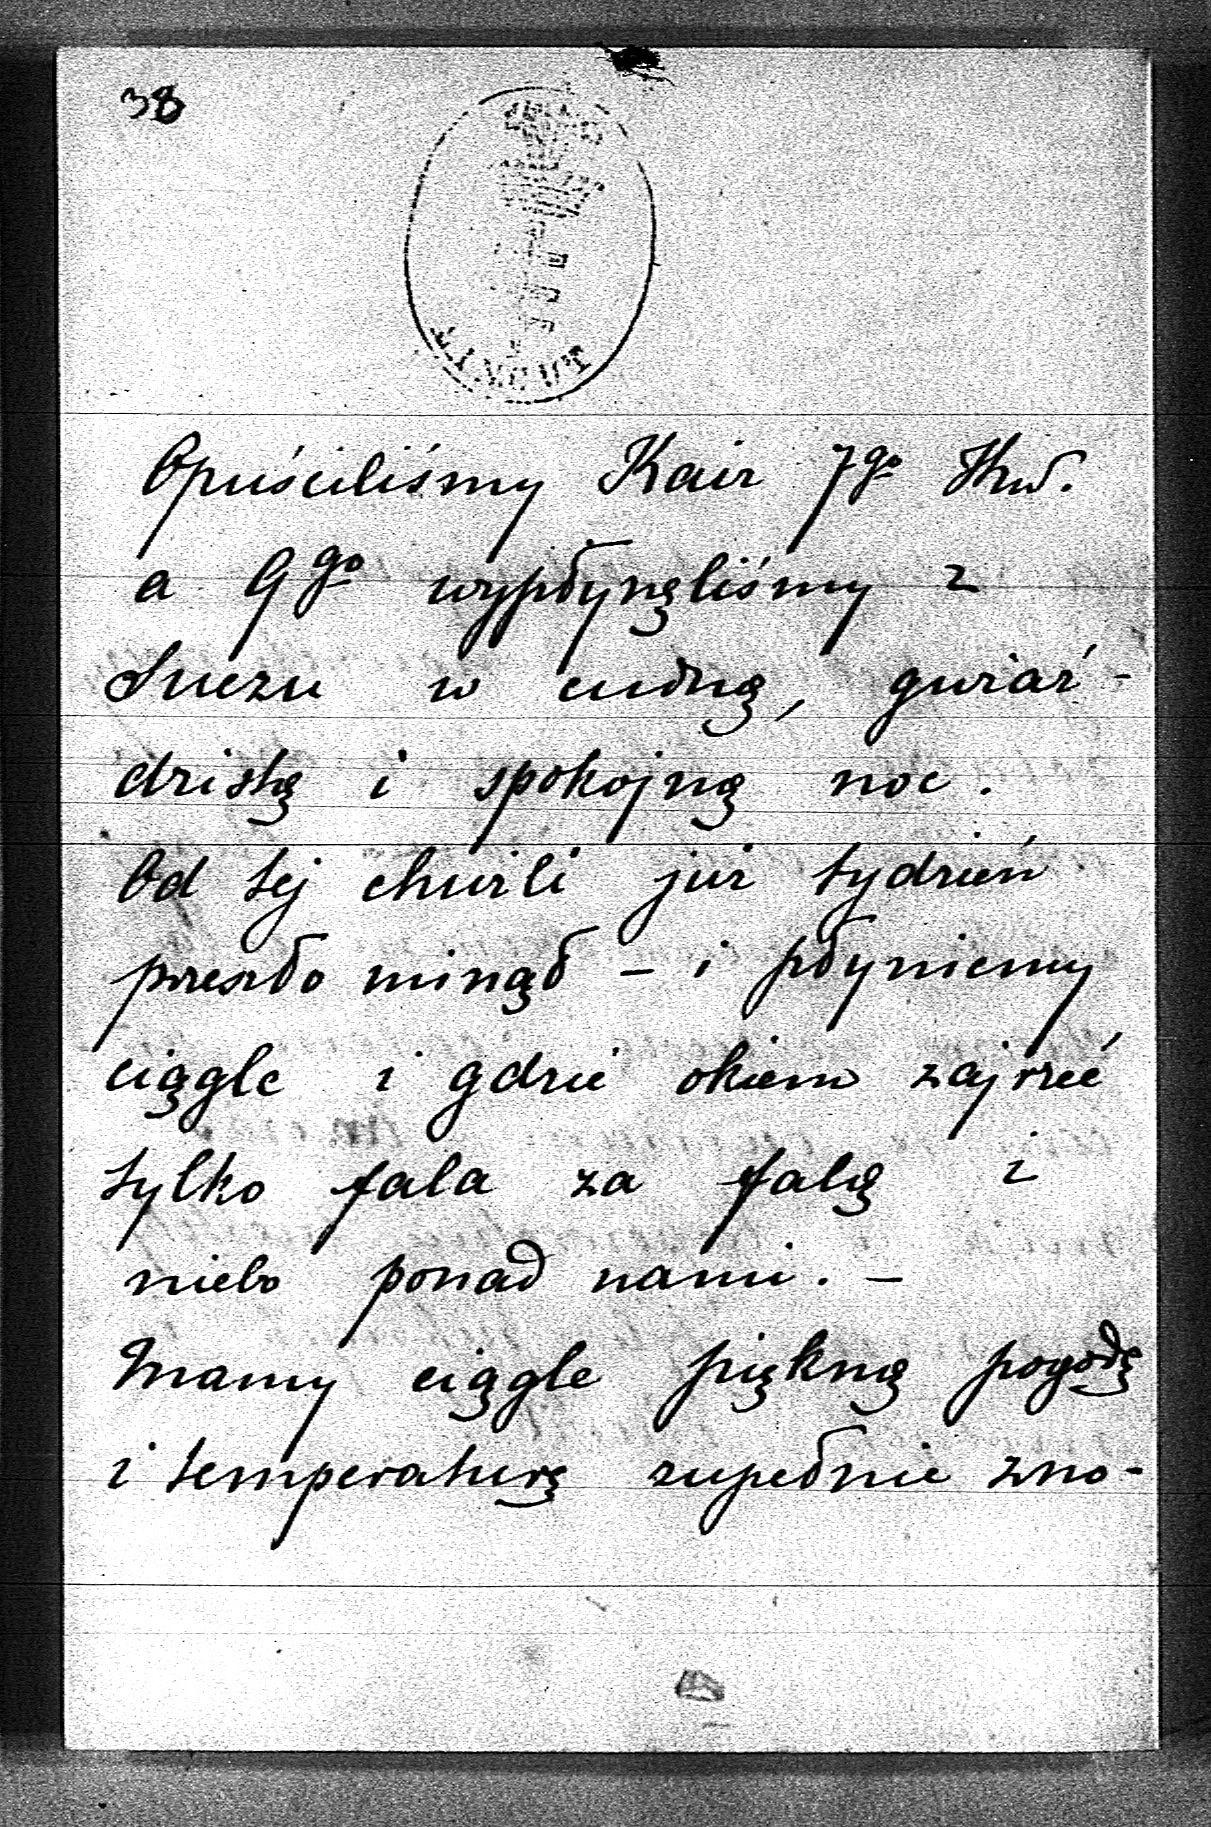 38
ŁAŃCUT
Opuściliśmy Kair 7go Kw.
a 9go wypłynęliśmy z
Suezu w cudną, gwiaź-
dzistą i spokojną noc.
Od tej chwili już tydzień
przeszło minął – i płyniemy
ciągle i gdzie okiem zajrzeć
tylko fala za falą i
niebo ponad nami. –
Mamy ciągle piękną pogodę
i temperaturę zupełnie zno-